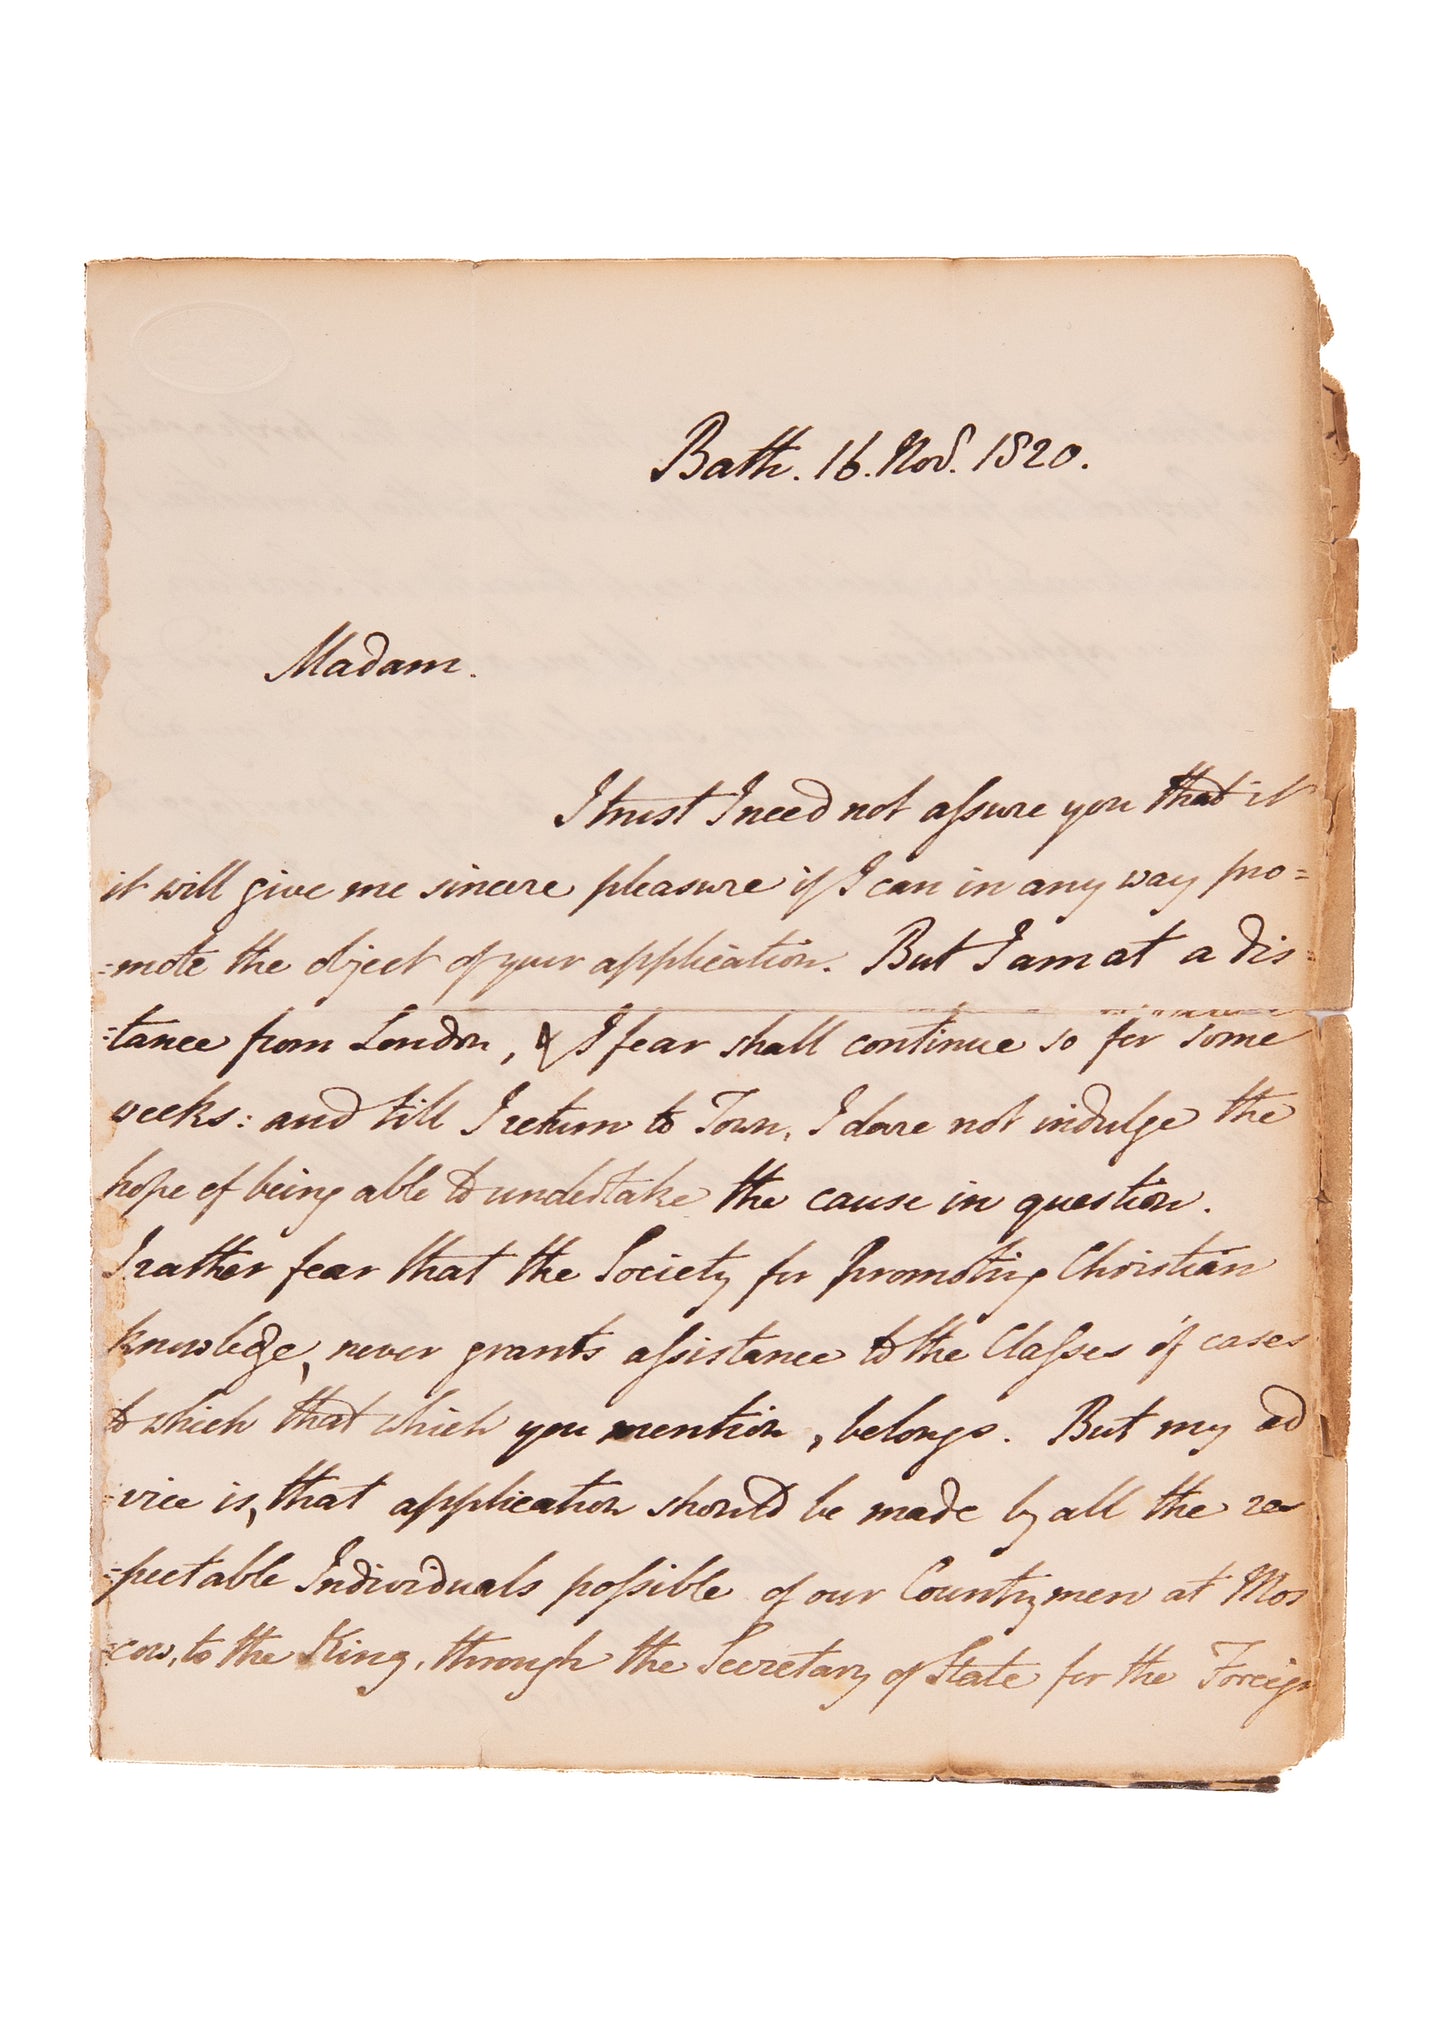 Bath. 16. Nov. 1820.
Madam.
I trust I need not assure you that it
it will give me sincere pleasure if I can in any way pro=
=mote the object of your application. But I am at a dis=
=tance from London, & I fear shall continue so for some
weeks: and till I return to Town, I dare not indulge the
hope of being able to undertake the cause in question.
I rather fear that the Society for promoting Christian
knowledge, never grants assistance to the Classes of cases
to which that which you mention, belongs. But my ad
=vice is, that application should be made by all the res
=pectable Individuals possible of our Countrymen at Mos
=cow, to the King, through the Secretary of State for the Foreign